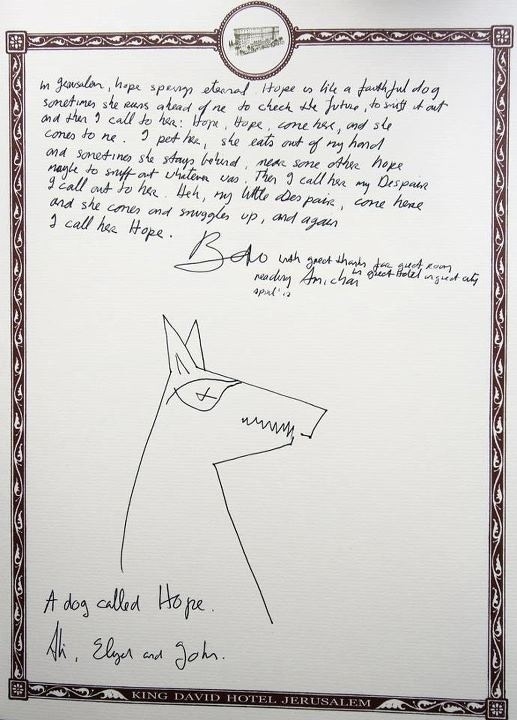 In Jerusalem, hope springs eternal. Hope is like a faithful dog
sometimes she runs ahead of me to check the future, to sniff it out
and then I call to her: Hope, Hope, come here, and she
comes to me. I pet her, she eats out of my hand
and sometimes she stays behind, near some other hope
maybe to sniff out whatever was. Then I call her my Despair
I call out to her. Heh, my little Despair, come here
and she comes and snuggles up, and again
I call her Hope.
Bono with great thanks for great room
reading Amichai in great hotel in great city
april
A dog called Hope.
Ali, and John.
KING DAVID HOTEL JERUSALEM